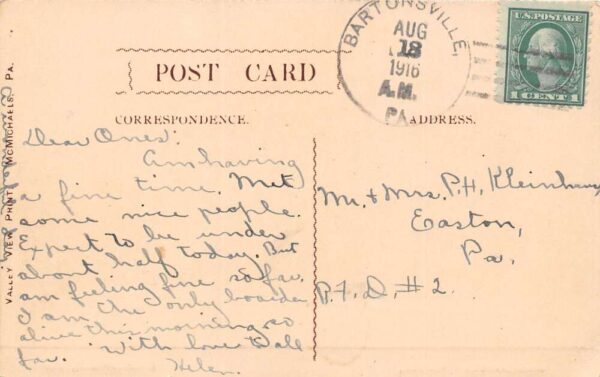 BARTONSVILLE,
AUG
18
1916
A.M.
PA.
U.S. POSTAGE
1 CENT 1
POST CARD
CORRESPONDENCE.
ADDRESS.
VALLEY VIEW PRINT, McMICHAELS, PA.
Dear Ones:
Am having
a fine time. Met
some nice people.
Expect to be under
about half today. But
am feeling fine so far.
I am the only boarder
alive this morning so
far. With love to all
Helen.
Mr. + Mrs. P.H. Kleinhans
Easton,
Pa.
R.F.D. #2.